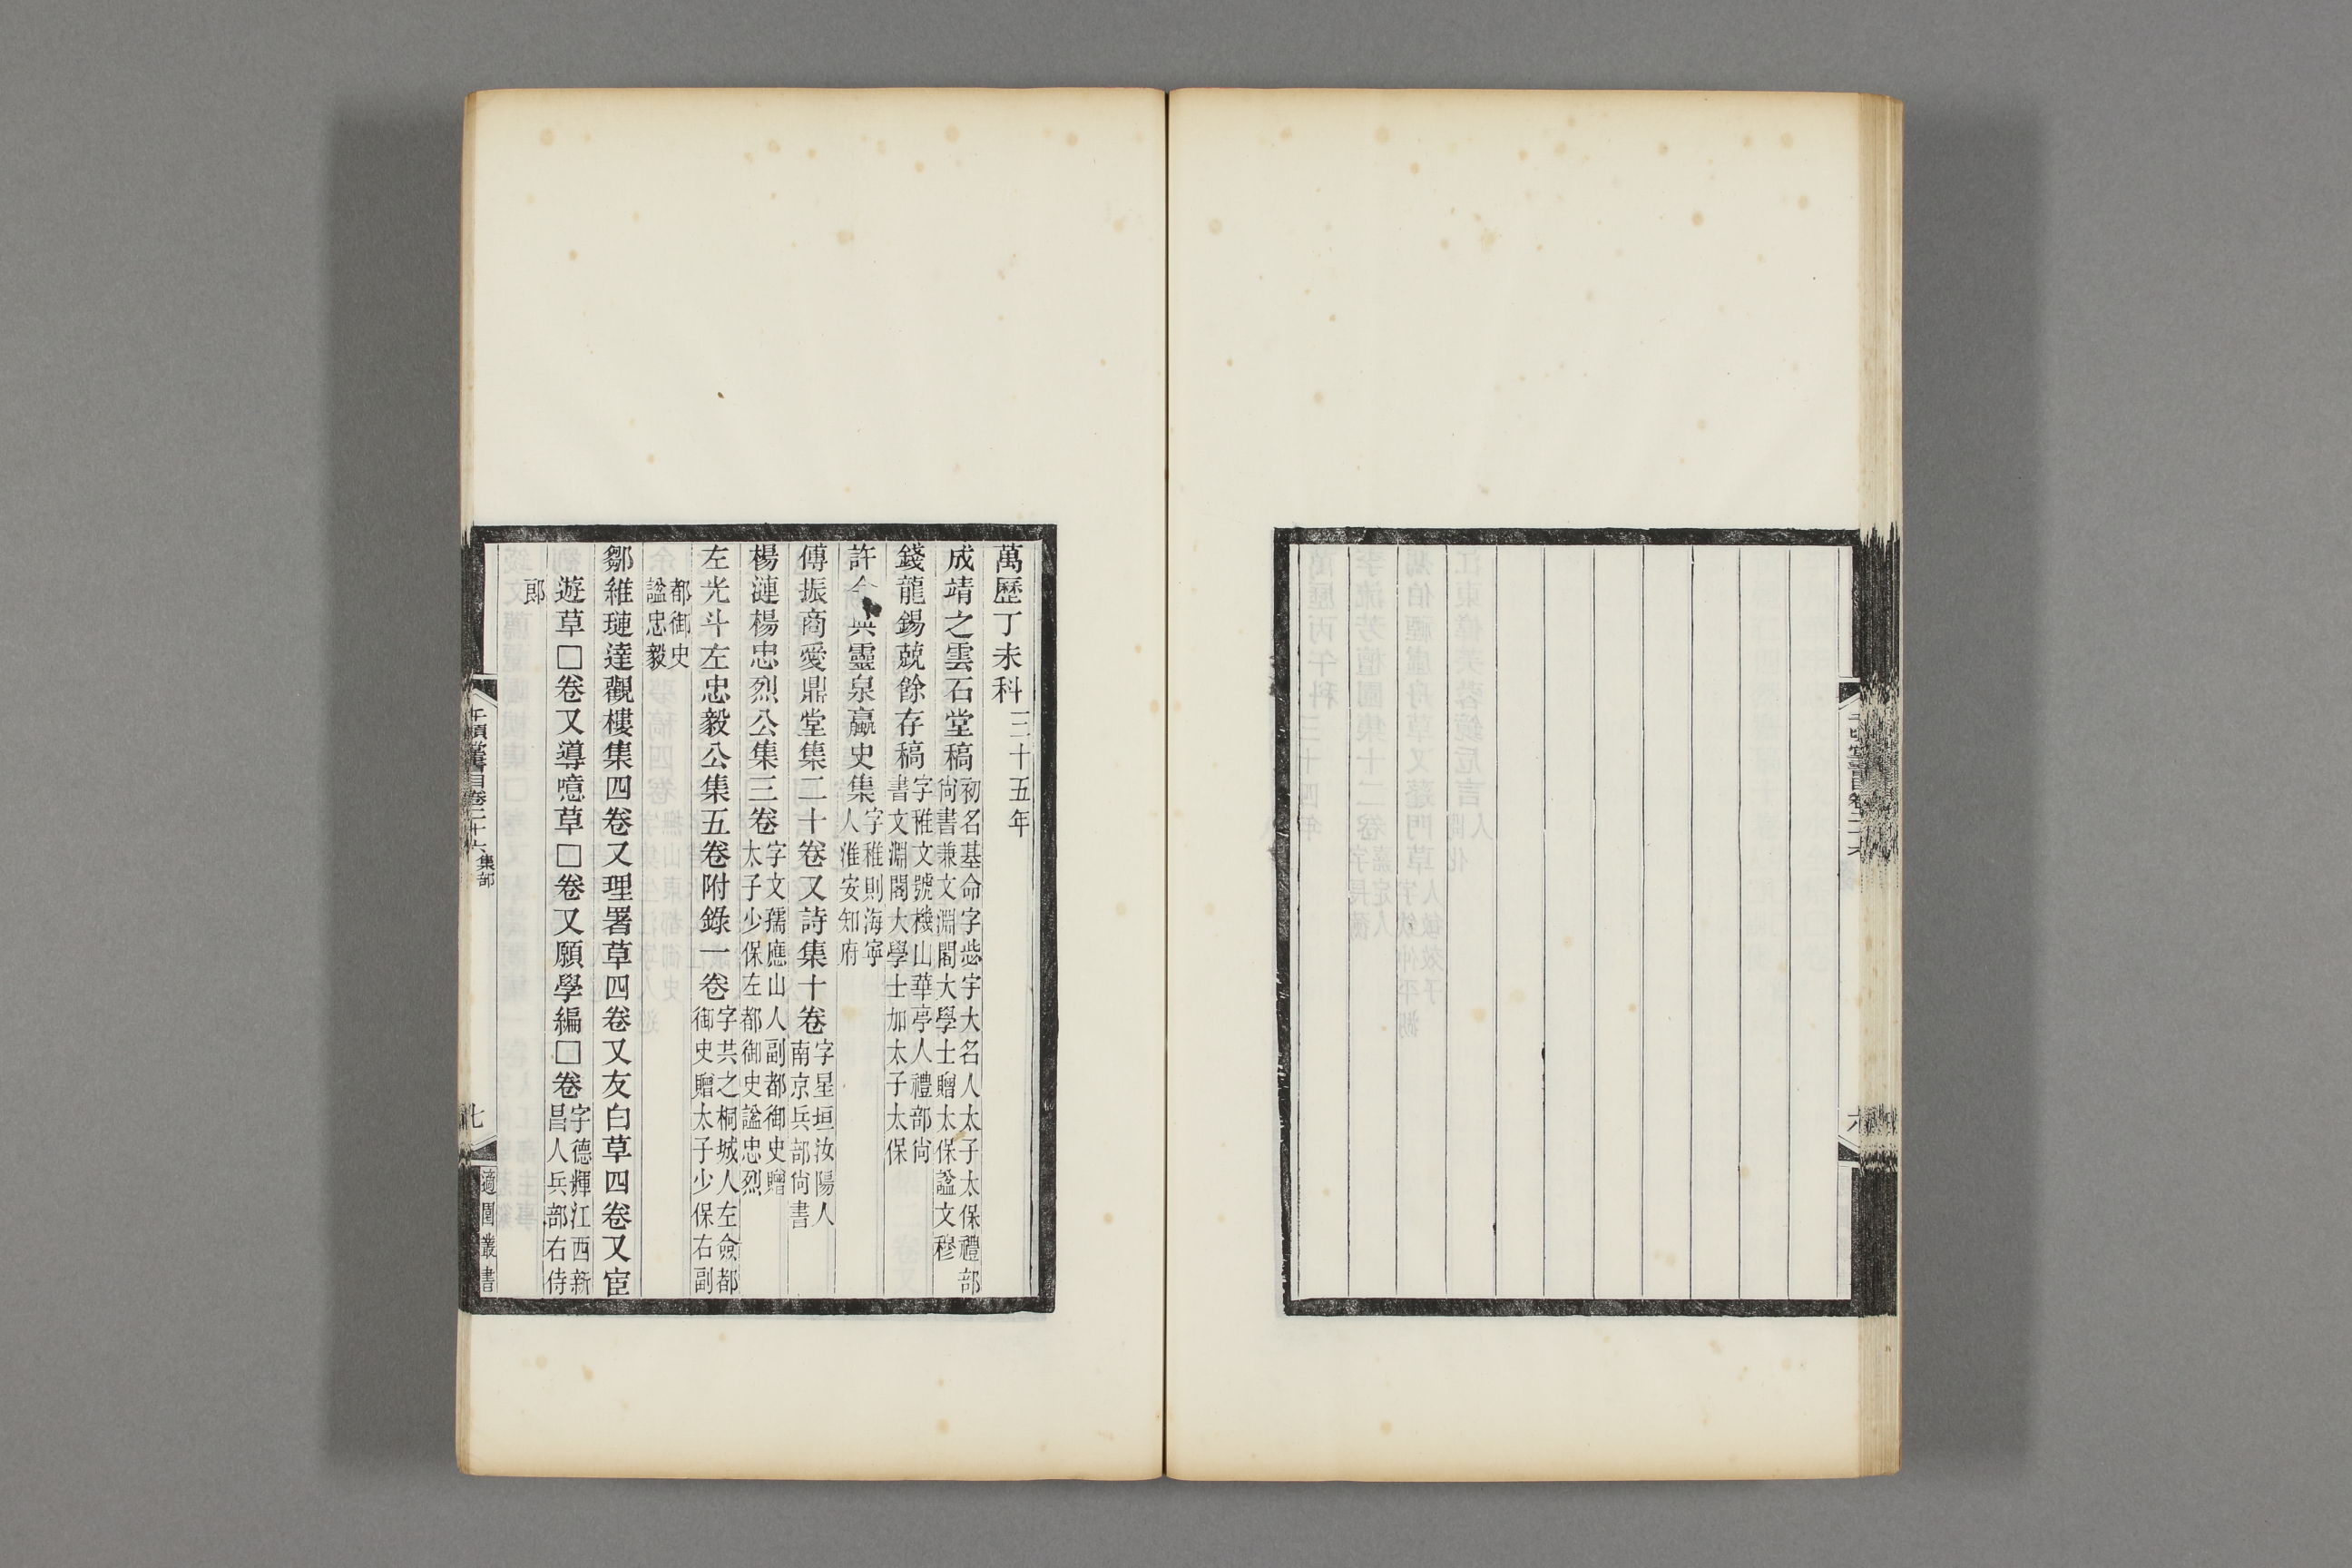 萬歷丁未科三十五年
成靖之雲石堂稿初名基命字毖宇大名人太子太保禮部尙書兼文淵閣大學士贈太保諡文穆
錢龍錫兢餘存稿字稚文號機山華亭人禮部尙書文淵閣大學士加太子太保
許令典靈泉贏史集字稚則海寧人淮安知府
傅振商愛鼎堂集二十卷又詩集十卷字星垣汝陽人南京兵部尙書
楊漣楊忠烈公集三卷字文孺應山人副都御史贈太子少保左都御史諡忠烈
左光斗左忠毅公集五卷附錄一卷字共之桐城人左僉都御史贈太子少保右副
都御史諡忠毅
鄒維璉達觀樓集四卷又理署草四卷又友白草四卷又宦
遊草□卷又導噫草□卷又願學編□卷字德輝江西新昌人兵部右侍
郎
千頃堂書目卷二十六 集部
七
適園叢書